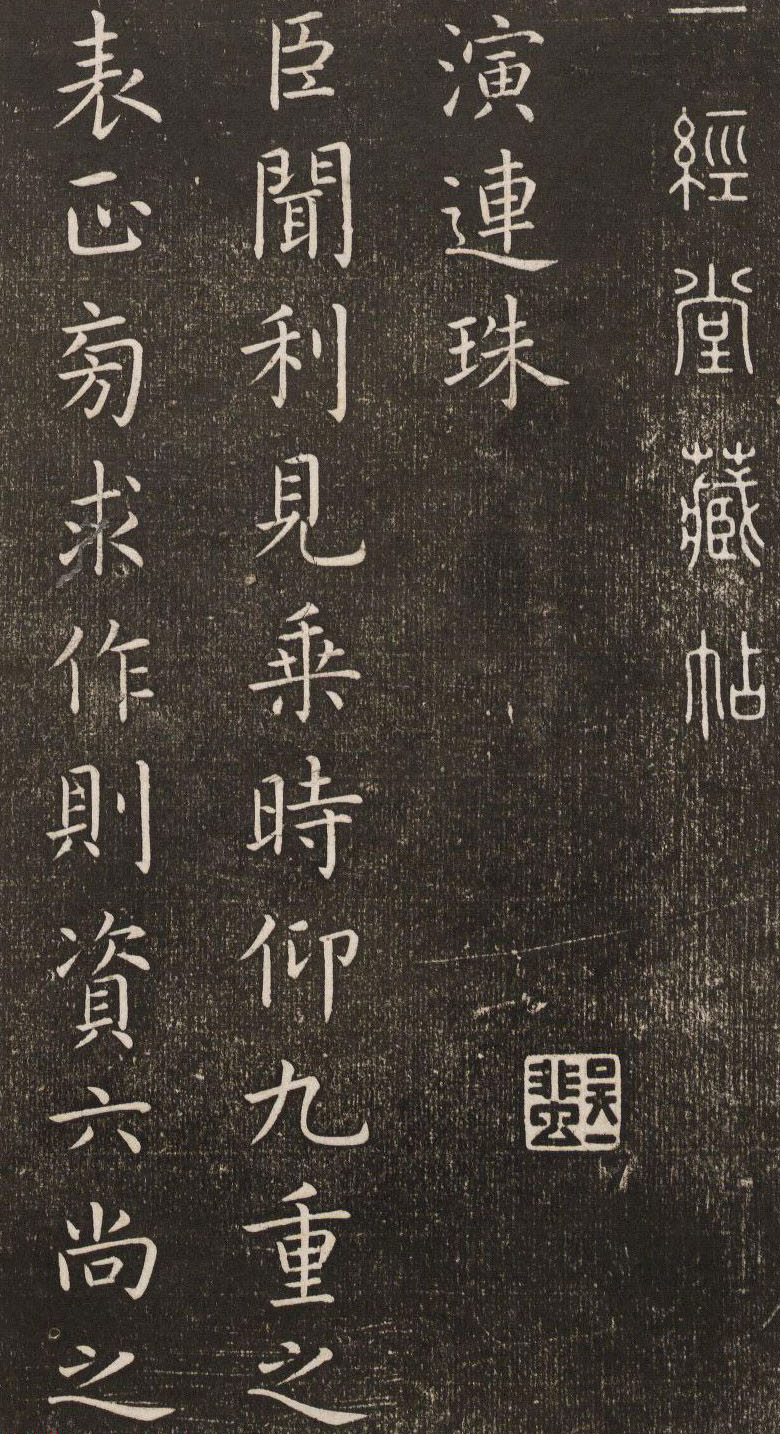 一經堂藏帖
演連珠
吳一蜚
臣聞利見乘時仰九重之
表正旁求作則資六尚之